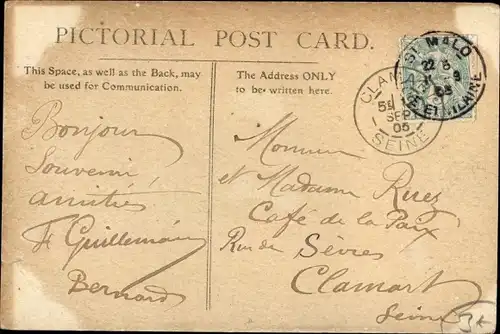 PICTORIAL POST CARD.
This Space, as well as the Back, may
be used for Communication.
The Address ONLY
to be written here.
Bonjour
Souvenir,
amitiés
F Guillemain
Bernard
Monsieur
et Madame Ruez
Café de la Paix
Rue de Sèvres
Clamart
Seine
ST MALO
ILLE ET VILAINE
CLAMART
SEPT
05
SEINE